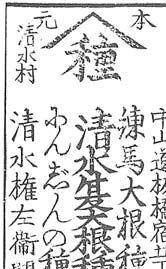 本元
種
中山道板橋宿
練馬大根種
清水夏大根種
にんじんの種
清水権左衛門
清水村